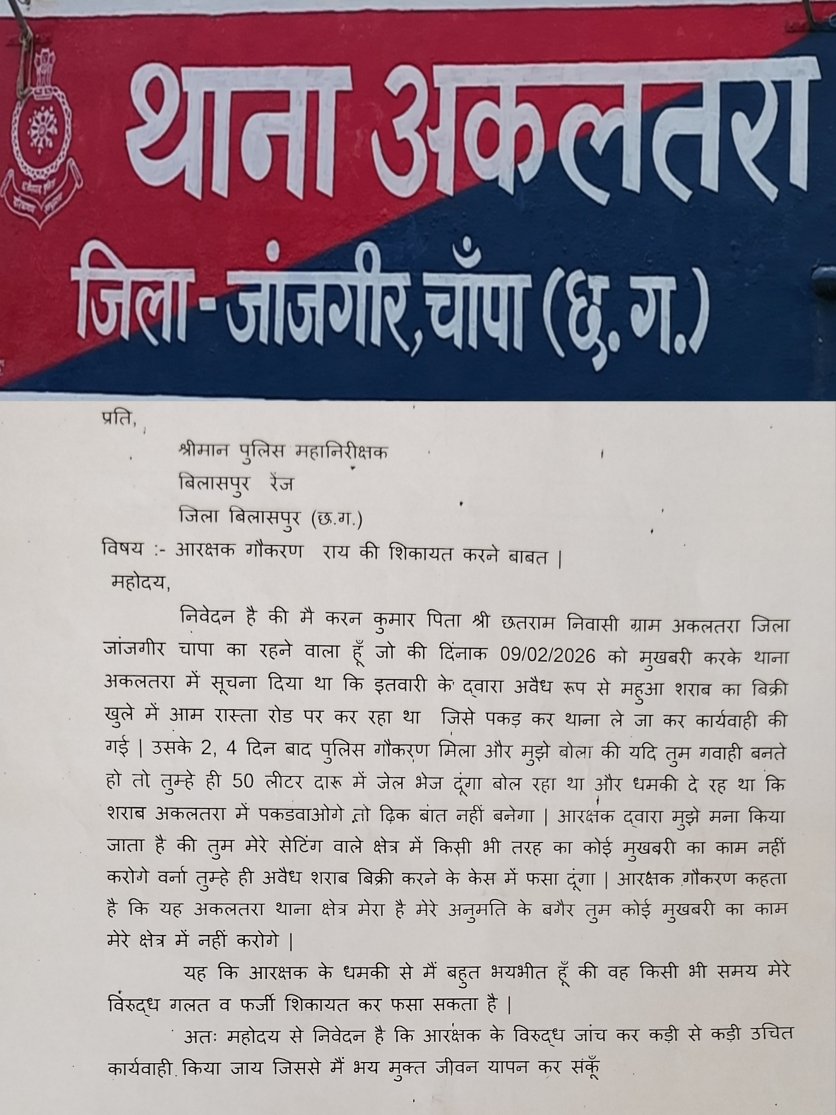 थाना अकलतरा
जिला - जांजगीर, चाँपा (छ. ग.)
प्रति,
श्रीमान पुलिस महानिरीक्षक
बिलासपुर रेंज
जिला बिलासपुर (छ.ग.)
विषय :- आरक्षक गौकरण राय की शिकायत करने बाबत |
महोदय,
निवेदन है की मै करन कुमार पिता श्री छतराम निवासी ग्राम अकलतरा जिला
जांजगीर चांपा का रहने वाला हूँ जो की दिंनाक 09/02/2026 को मुखबरी करके थाना
अकलतरा में सूचना दिया था कि इतवारी के द्वारा अवैध रूप से महुआ शराब का बिक्री
खुले में आम रास्ता रोड पर कर रहा था जिसे पकड़ कर थाना ले जा कर कार्यवाही की
गई | उसके 2, 4 दिन बाद पुलिस गौकरण मिला और मुझे बोला की यदि तुम गवाही बनते
हो तो तुम्हे ही 50 लीटर दारू में जेल भेज दूंगा बोल रहा था और धमकी दे रह था कि
शराब अकलतरा में पकडवाओगे तो ढ़िक बात नहीं बनेगा | आरक्षक द्वारा मुझे मना किया
जाता है की तुम मेरे सेटिंग वाले क्षेत्र में किसी भी तरह का कोई मुखबरी का काम नहीं
करोगे वर्ना तुम्हे ही अवैध शराब बिक्री करने के केस में फसा दूंगा | आरक्षक गौकरण कहता
है कि यह अकलतरा थाना क्षेत्र मेरा है मेरे अनुमति के बगैर तुम कोई मुखबरी का काम
मेरे क्षेत्र में नहीं करोगे |
यह कि आरक्षक के धमकी से मैं बहुत भयभीत हूँ की वह किसी भी समय मेरे
विरुद्ध गलत व फर्जी शिकायत कर फसा सकता है |
अतः महोदय से निवेदन है कि आरक्षक के विरुद्ध जांच कर कड़ी से कड़ी उचित
कार्यवाही किया जाय जिससे मैं भय मुक्त जीवन यापन कर संकूँ